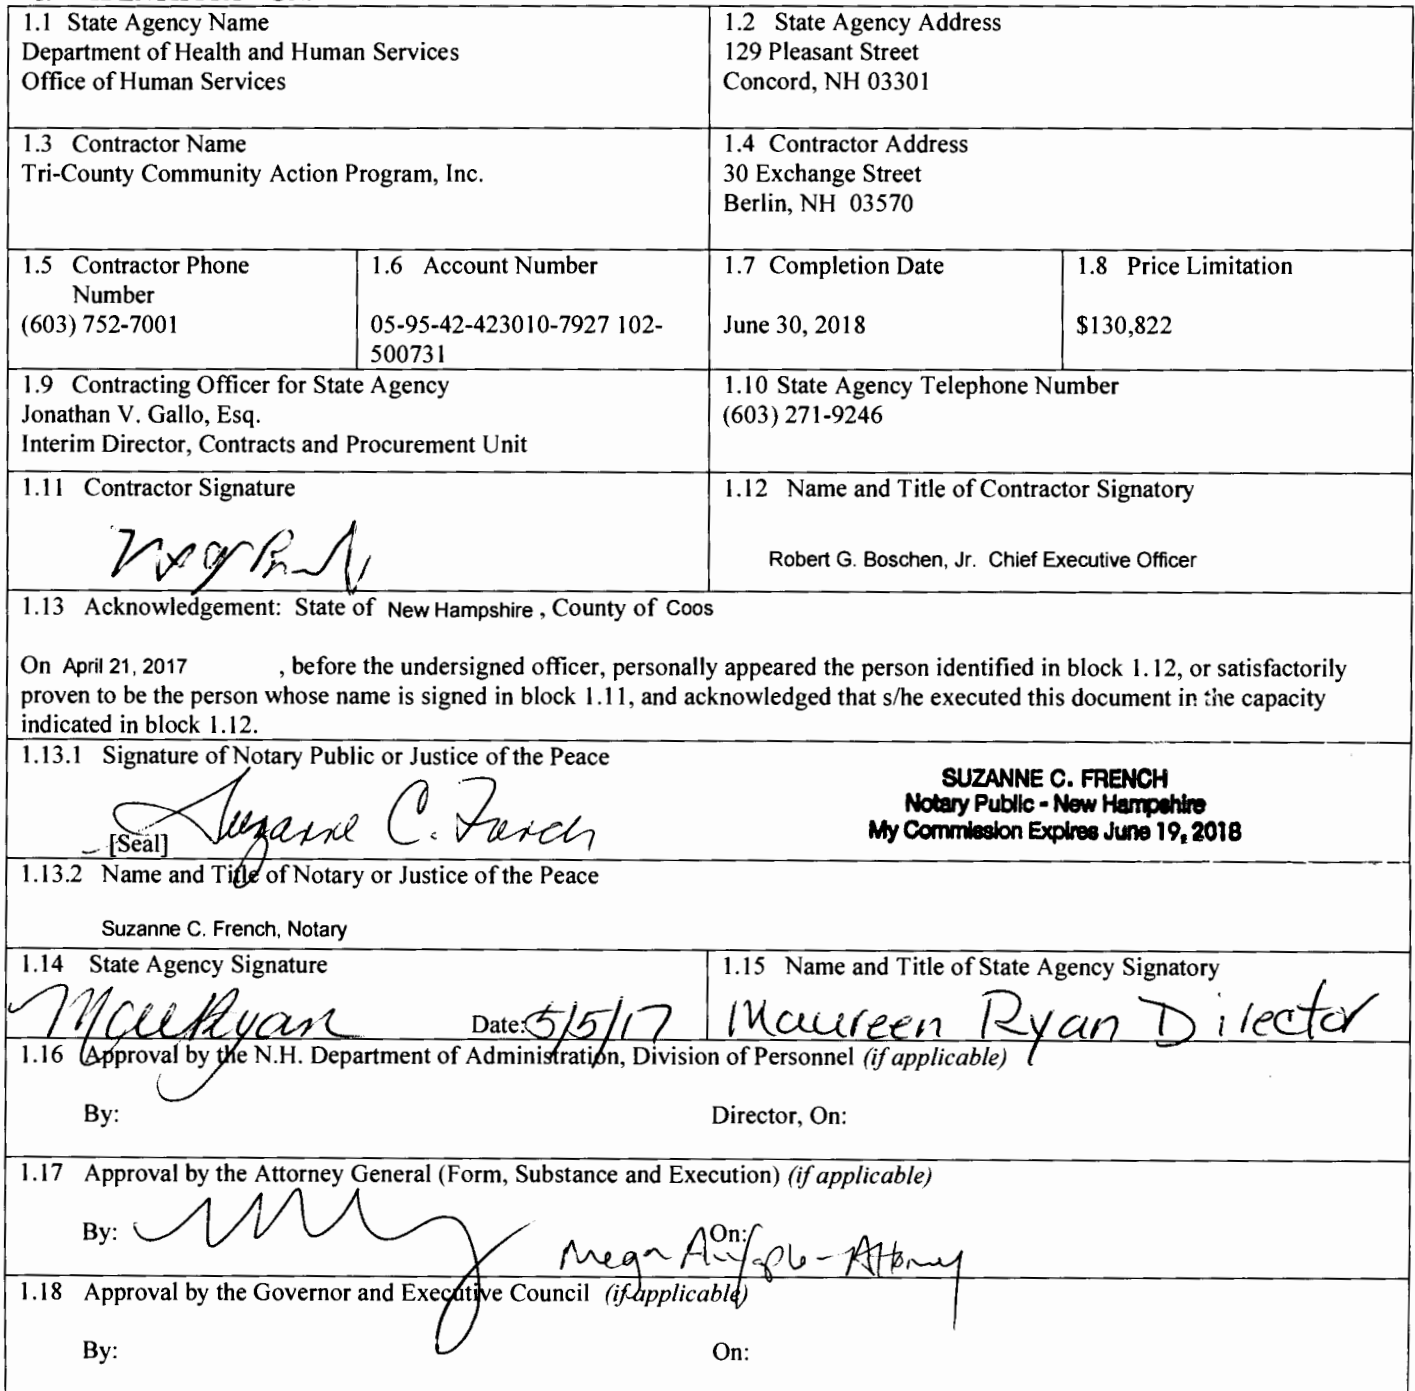 1.1 State Agency Name
Department of Health and Human Services
Office of Human Services
1.2 State Agency Address
129 Pleasant Street
Concord, NH 03301
1.3 Contractor Name
Tri-County Community Action Program, Inc.
1.4 Contractor Address
30 Exchange Street
Berlin, NH 03570
1.5 Contractor Phone
Number
(603) 752-7001
1.6 Account Number
05-95-42-423010-7927 102-
500731
1.7 Completion Date
June 30, 2018
1.8 Price Limitation
$130,822
1.9 Contracting Officer for State Agency
Jonathan V. Gallo, Esq.
Interim Director, Contracts and Procurement Unit
1.10 State Agency Telephone Number
(603) 271-9246
1.11 Contractor Signature
1.12 Name and Title of Contractor Signatory
Robert G. Boschen, Jr. Chief Executive Officer
1.13 Acknowledgement: State of New Hampshire , County of Coos
On April 21, 2017 , before the undersigned officer, personally appeared the person identified in block 1.12, or satisfactorily
proven to be the person whose name is signed in block 1.11, and acknowledged that s/he executed this document in the capacity
indicated in block 1.12.
1.13.1 Signature of Notary Public or Justice of the Peace
Suzanne C. French
[Seal]
SUZANNE C. FRENCH
Notary Public - New Hampshire
My Commission Expires June 19, 2018
1.13.2 Name and Title of Notary or Justice of the Peace
Suzanne C. French, Notary
1.14 State Agency Signature
Date: 5/5/17
1.15 Name and Title of State Agency Signatory
Maureen Ryan Director
1.16 Approval by the N.H. Department of Administration, Division of Personnel (if applicable)
By:
Director, On:
1.17 Approval by the Attorney General (Form, Substance and Execution) (if applicable)
By:
On:
Attorney
1.18 Approval by the Governor and Executive Council (if applicable)
By:
On: